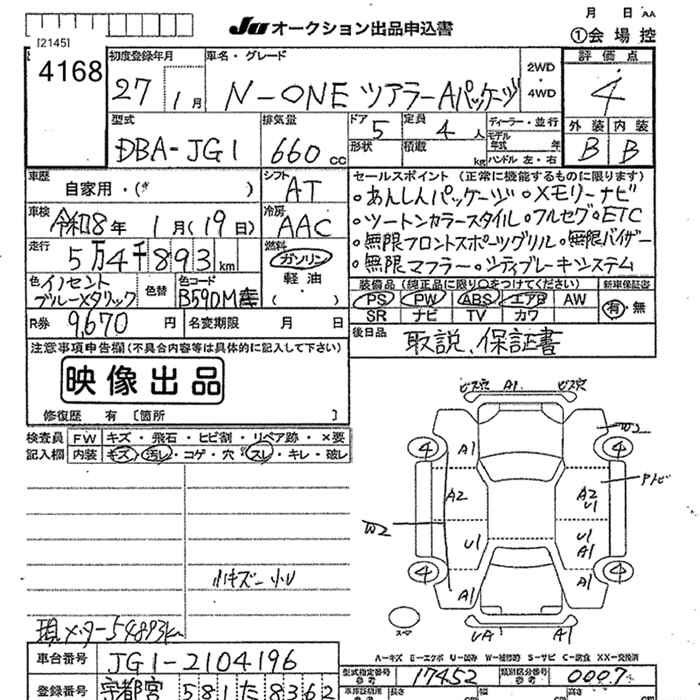 月 日 AA
JU オークション出品申込書
①会場控
[2145]
4168
初度登録年月
27 1月
車名・グレード
N-ONE ツアラーAパッケージ
2WD
・4WD
評価点
4
外装 内装
B B
型式
DBA-JG1
排気量
660 cc
ドア 5
形状
定員 4 人
積載 kg
ディーラー・並行
モデル年式 年式
ハンドル 左・右
車歴
自家用・( )
シフト
AT
セールスポイント (正常に機能するものに限ります)
・あんしんパッケージ ・メモリーナビ
・ツートンカラースタイル ・フルセグ ・ETC
・無限フロントスポーツグリル ・無限バイザー
・無限マフラー ・シティブレーキシステム
車検
令和8年 1月(19日)
冷房
AAC
走行
5万4千893km
燃料
ガソリン
軽油
( )
色 イノセントブルーメタリック
色替
色コード
B590M
装備品 (純正品に限り○をつけてください)
PS PW ABS エアB AW
SR ナビ TV カワ
新車保証書
有・無
R券 9,670 円
名変期限 月 日
後日品
取説、保証書
注意事項申告欄(不具合内容等は具体的に記入して下さい)
映像出品
修復歴 有 [箇所 ]
検査員記入欄
FW キズ・飛石・ヒビ割・リペア跡・×要
内装 キズ・汚レ・コゲ・穴・スレ・キレ・破レ
ビス穴 A1 ビス穴
4 A1 W2 4
A2 A2 U1
W2 U1 U1 A1
4 A1 A1 4
UA1 A1
小キズ―小U
現メーター54893km
A―キズ E―エクボ U―凹み W―補修跡 S―サビ C―腐食 XX―交換済
車台番号 JG1-2104196
型式指定番号 17452
類別区分番号 0007
登録番号 宇都宮 581 た 8362